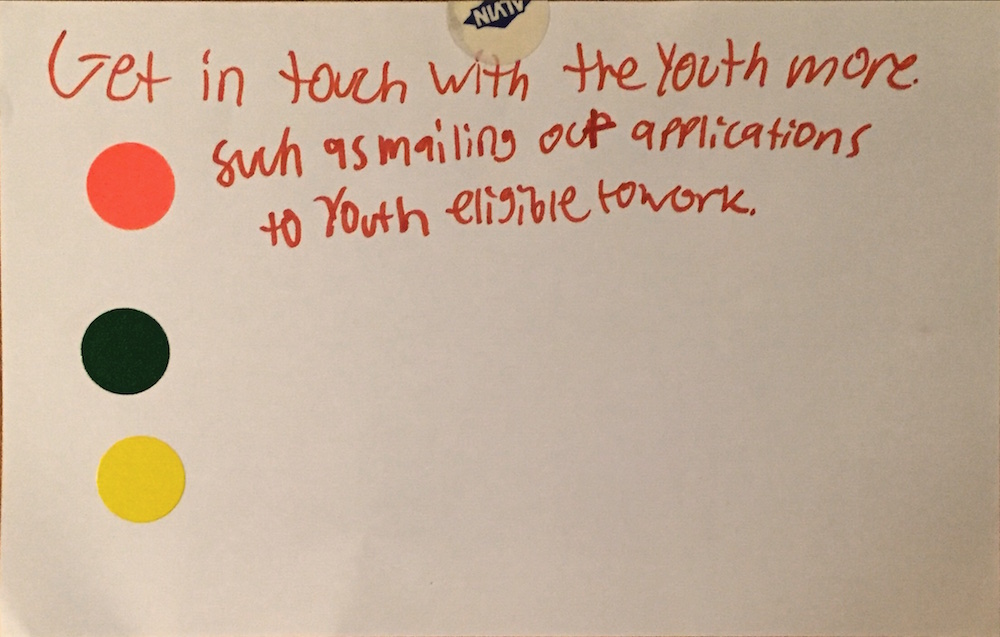 ALVIN
Get in touch with the Youth more.
such as mailing out applications
to Youth eligible to work.